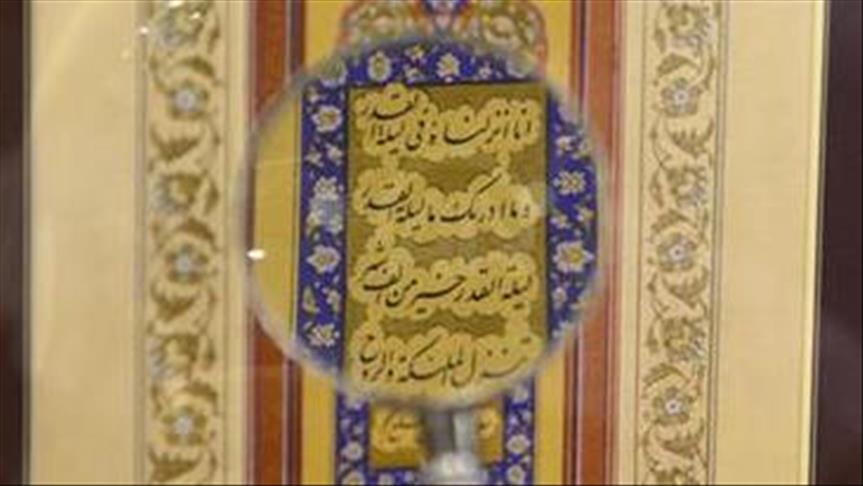 انا انزلناه فی لیلة القدر
و ما ادریک ما لیلة القدر
لیلة القدر خیر من الف شهر
تنزل الملئکة والروح